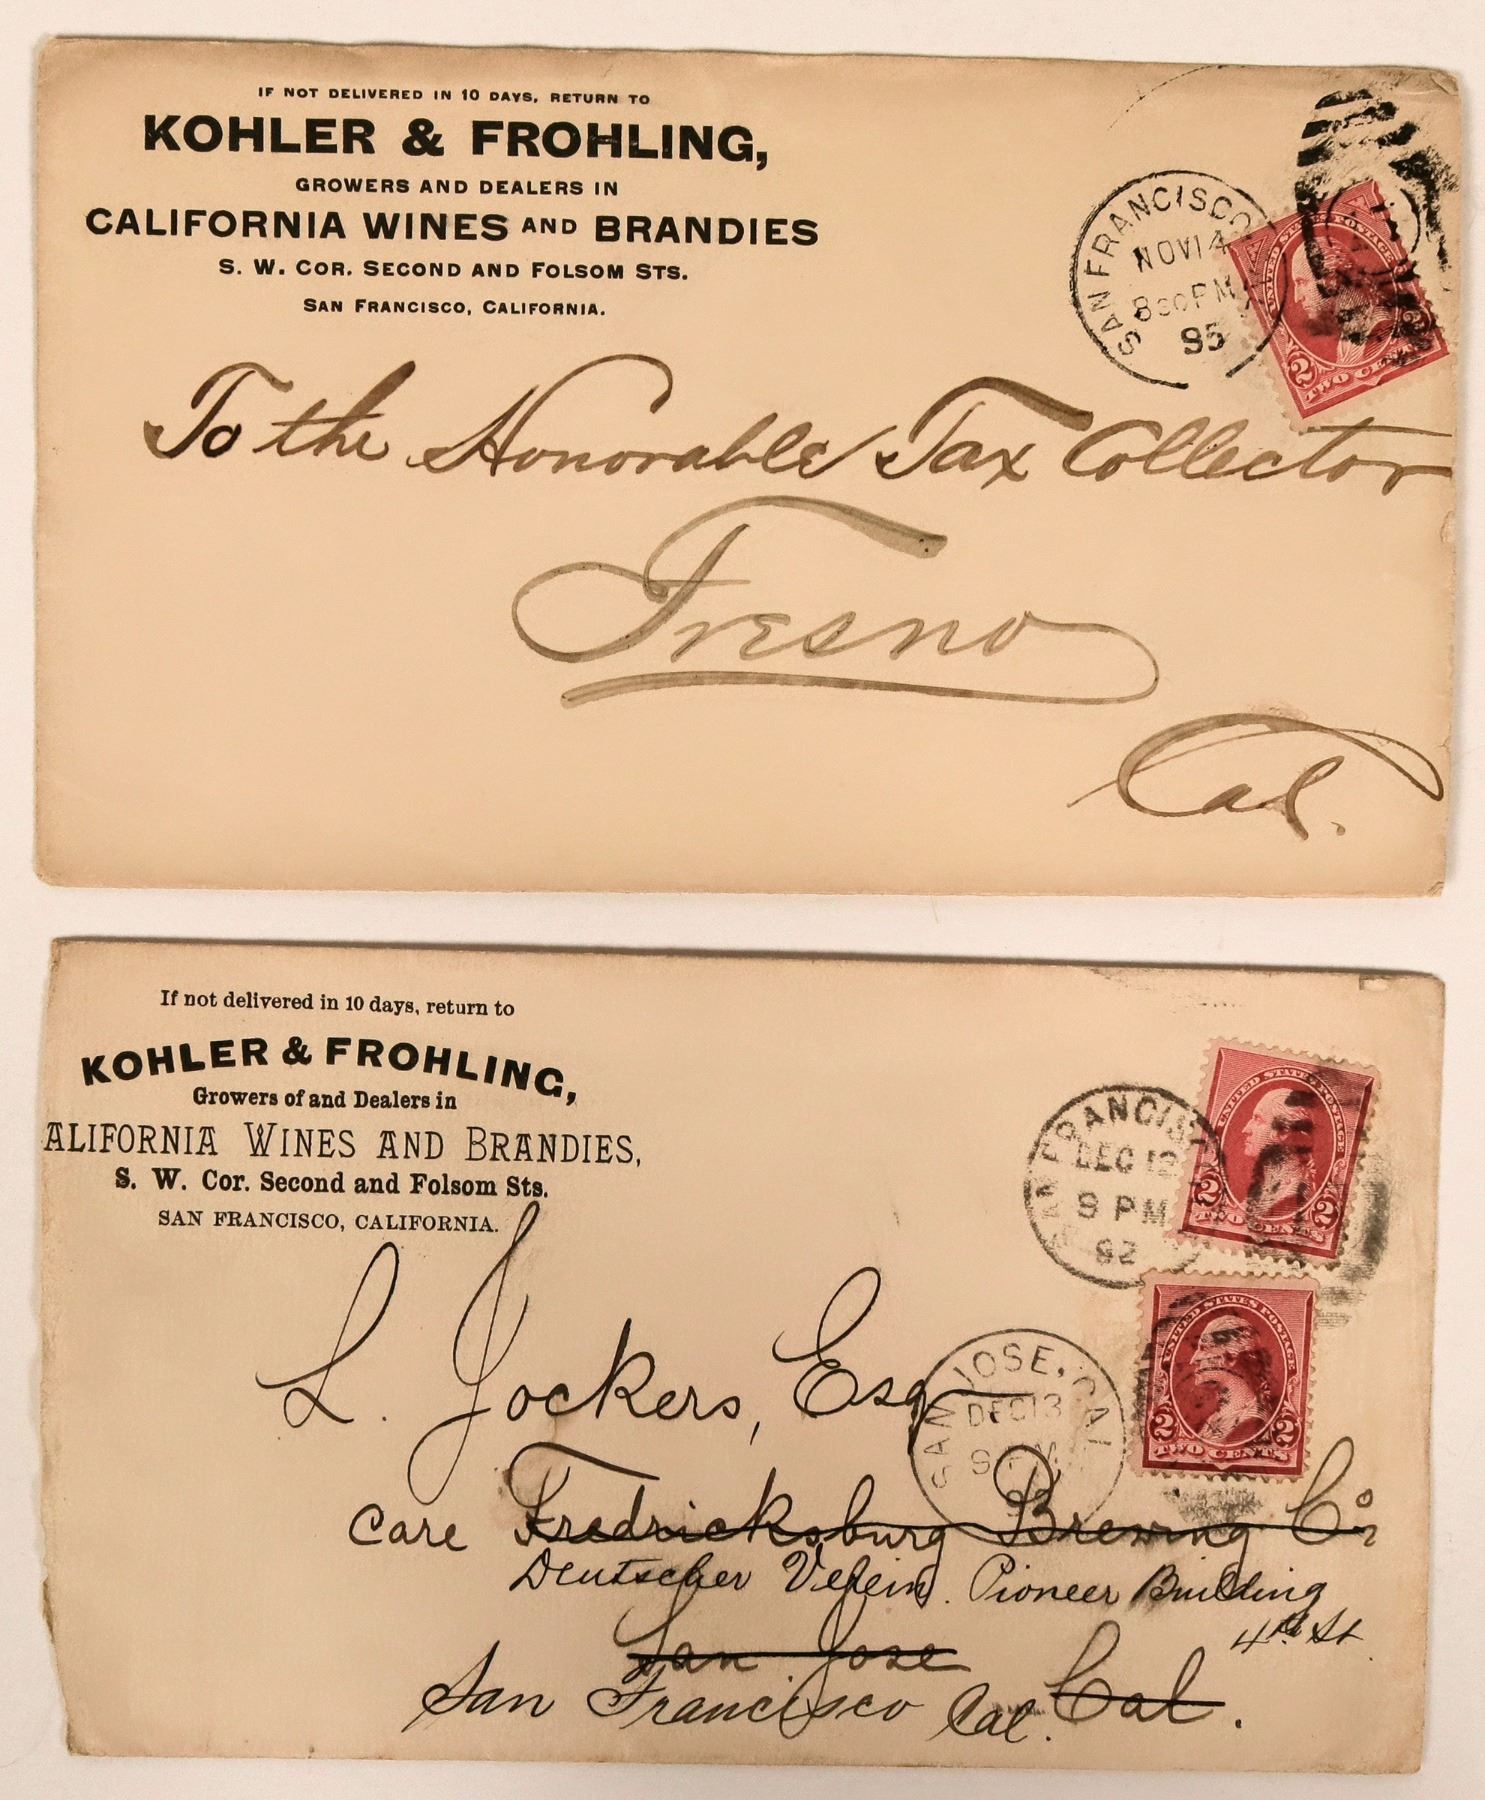 IF NOT DELIVERED IN 10 DAYS, RETURN TO
KOHLER & FROHLING,
GROWERS AND DEALERS IN
CALIFORNIA WINES AND BRANDIES
S. W. COR. SECOND AND FOLSOM STS.
SAN FRANCISCO, CALIFORNIA.
SAN FRANCISCO
NOV 14
830PM
95
UNITED STATES POSTAGE
2 2
TWO CENTS
To the Honorable Tax Collector
Fresno
Cal.
If not delivered in 10 days, return to
KOHLER & FROHLING,
Growers of and Dealers in
ALIFORNIA WINES AND BRANDIES,
S. W. Cor. Second and Folsom Sts.
SAN FRANCISCO, CALIFORNIA.
SAN FRANCISC
DEC 12
9 PM
92
UNITED STATES POSTAGE
2 2
TWO CENTS
UNITED STATES POSTAGE
2 2
TWO CENTS
SAN JOSE, CAL
DEC 13
L. Jockers, Esq
care Fredricksburg Brewing Co
Deutscher Verein. Pioneer Building
4th St
San Jose
San Francisco Cal. Cal.